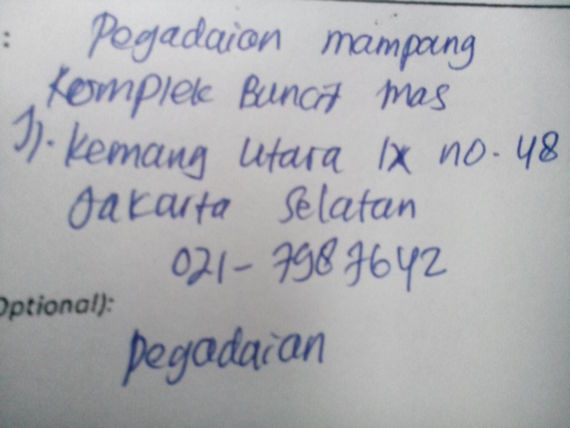 :
Pegadaian mampang
Komplek Buncit mas
Jl. Kemang Utara IX no. 48
Jakarta Selatan
021-7987642
Optional):
Pegadaian